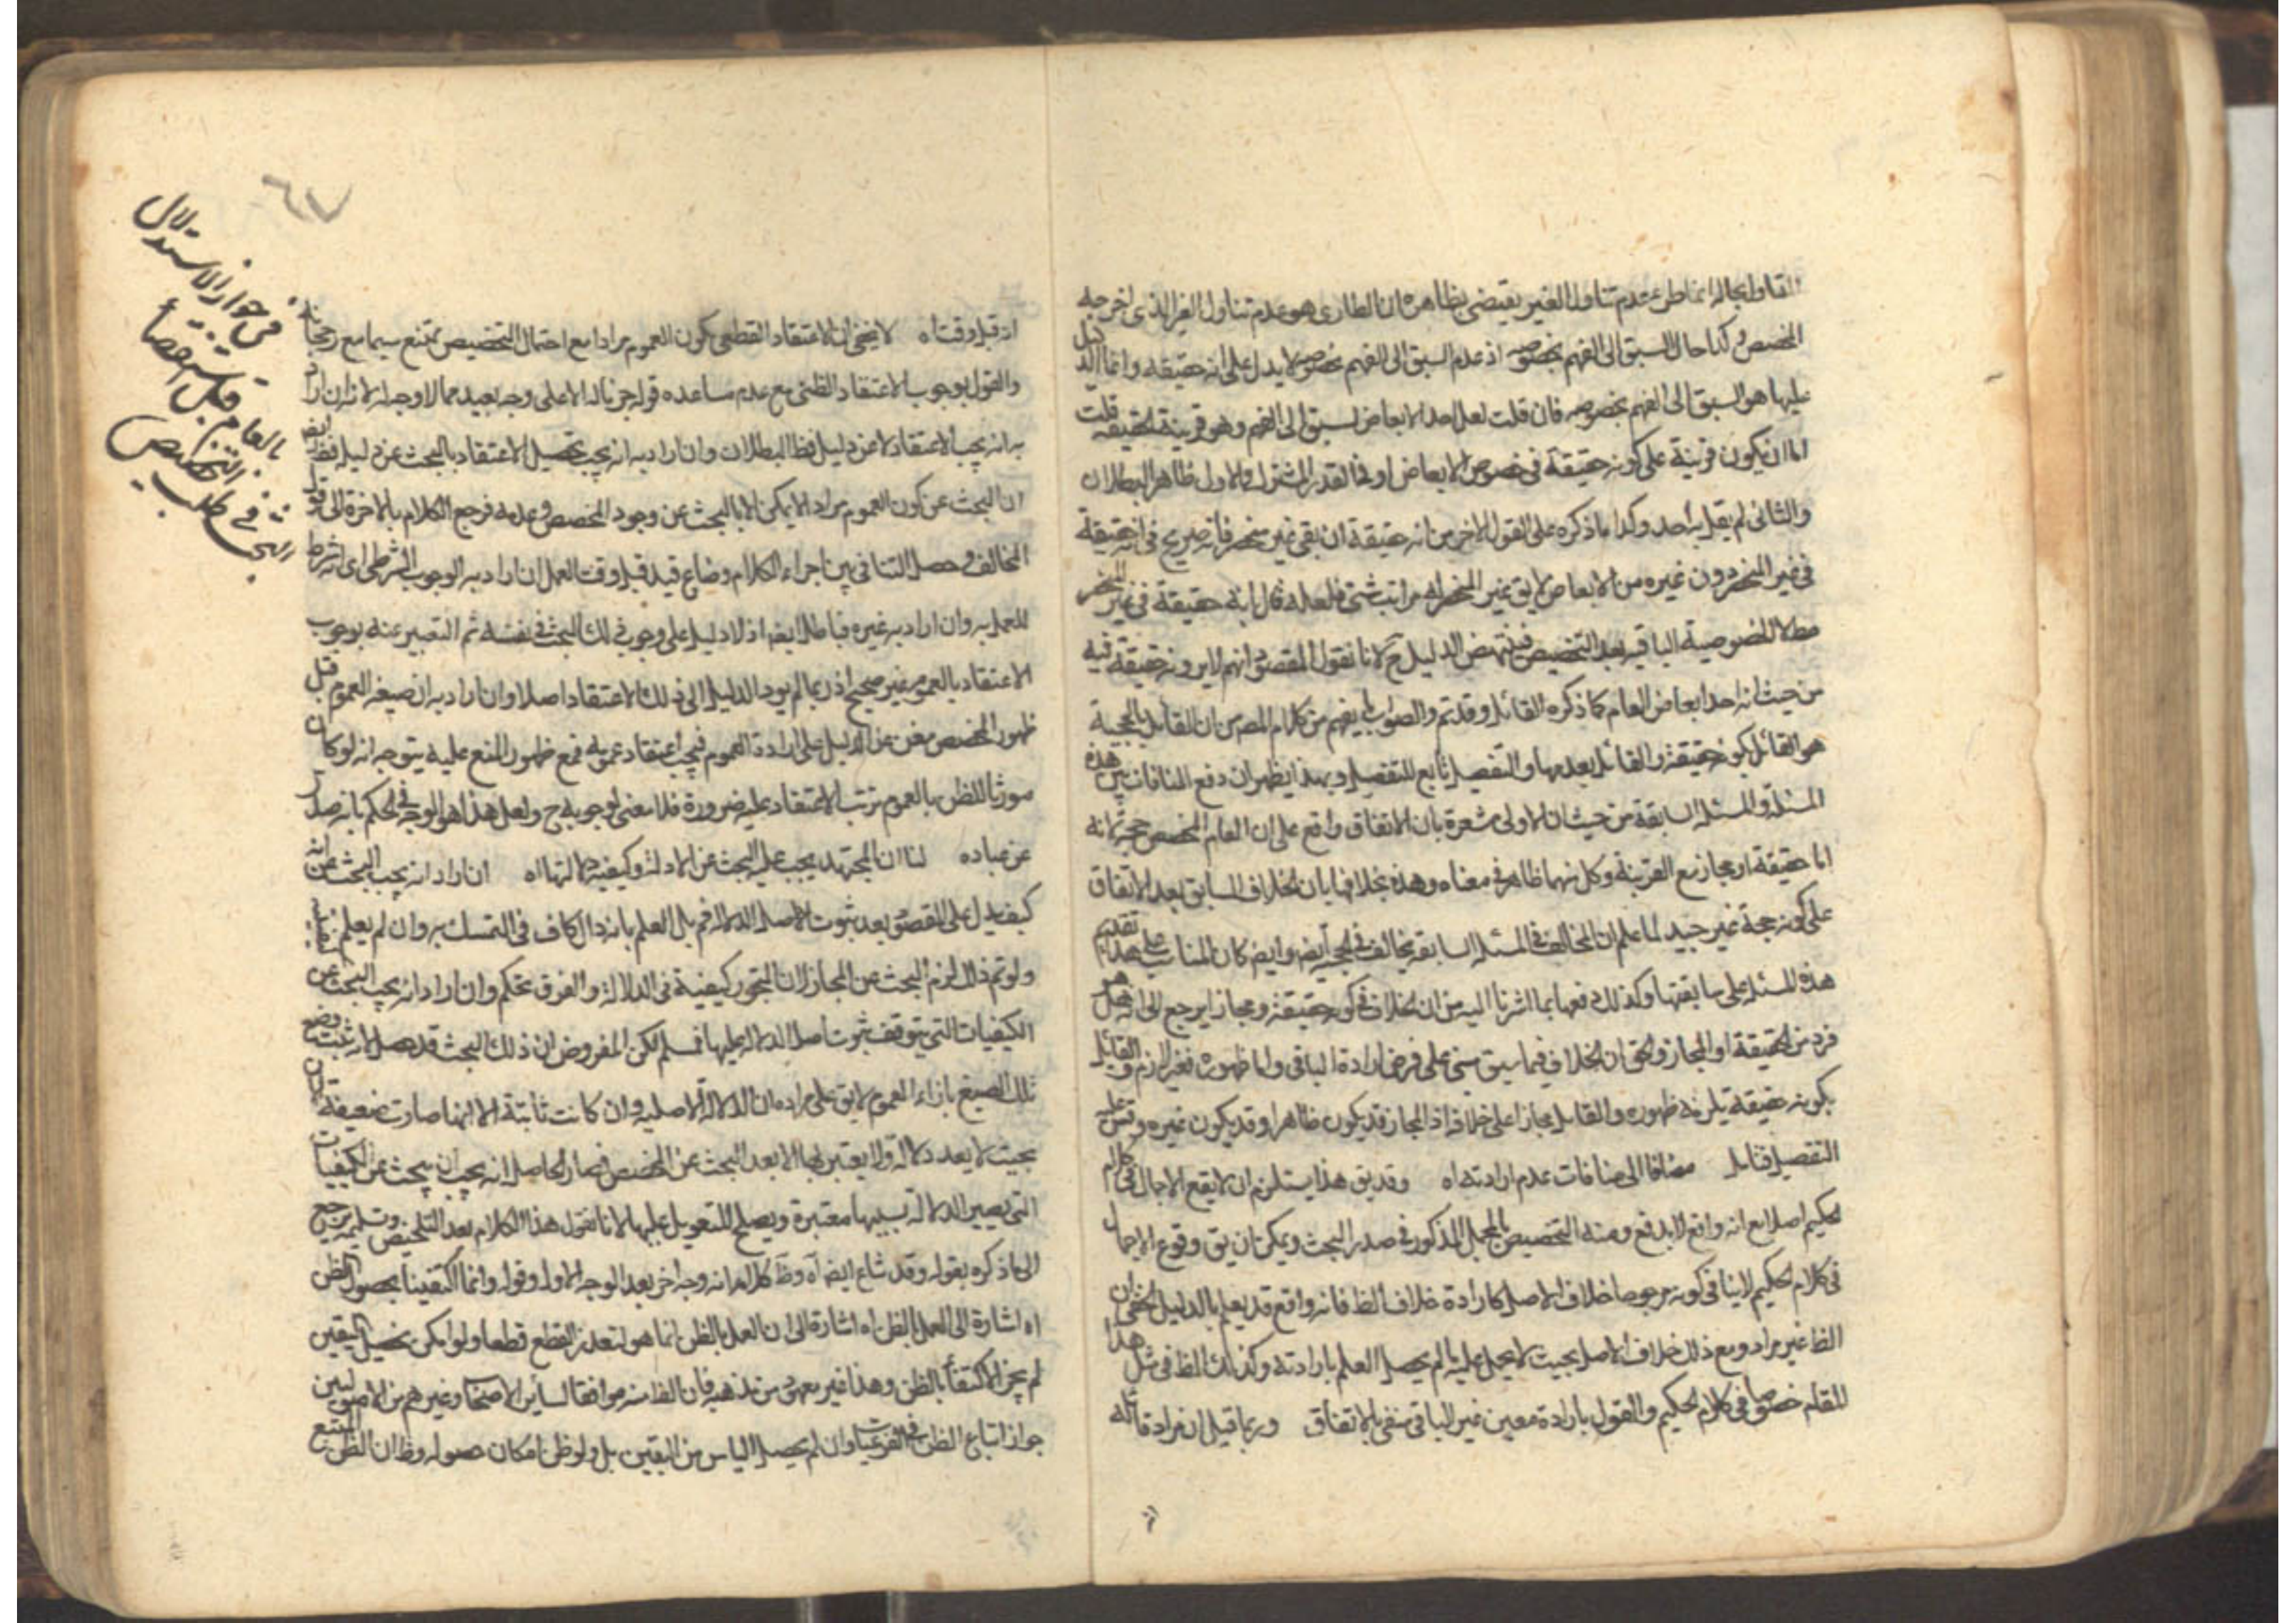 التناول بحاله انما طرء عدم تناول الغير يقتضى بظاهره ان الطارى هو عدم تناول الغير الذى اخرجه
المخصص وكذا حال السبق الى الفهم بخصوصه اذ عدم السبق الى الفهم بخصوصه لا يدل على انه حقيقه وانما الدليل
عليها هو السبق الى الفهم بخصوصه فان قلت لعل احد الابعاض لسبق الى الفهم وهو قرينة الحقيقه قلت
اما ان يكون قرينة على كونه حقيقة فى خصوص الابعاض او فى القدر المشترك والاول ظاهر البطلان
والثانى لم يقل به احد وكذا ما ذكره على القول الاخر من انه حقيقة ان بقى غير منحصر فانه صريح فى انه حقيقة
فى غير المنحصر دون غيره من الابعاض لا يق غير المنحصر له مراتب شتى فلعله قال بانه حقيقة فى غير المنحصر
مطلا لخصوصية الباقيه بعد التخصيص فينتهض الدليل ح لانا نقول المقصود انهم لا يرونه حقيقة فيه
من حيث انه احد ابعاض العام كما ذكره القائل وقد تم والصواب ما يفهم من كلام المص من ان القائل بالحجية
هو القائل بكونه حقيقة والقائل بعدمها والتفصيل تابع للتفصيل وبهذا يظهر ان دفع المنافات بين هذه
المسئلة والمسئلة السابقة من حيث ان الاولى مشعرة بان الاتفاق واقع على ان العام المخصص حجة لانه
اما حقيقة او مجاز مع القرينة وكل منهما ظاهر فى معناه وهذه بخلافها بان الخلاف السابق بعد الاتفاق
على كونه حجة غير جيد لما علم ان المخالف فى المسئلة السابقه يخالف فى الحجية ايضم وايضم كان المناسب على هذا تقديم
هذه المسئلة على سابقتها وكذلك دفعها بما اشرنا اليه من ان الخلاف فى كونه حقيقة ومجازا يرجع الى انه هل هو
فرد من الحقيقة او المجاز والحق ان الخلاف فيما سبق مبنى على فرض ارادة الباقى واما ظهوره فغير لازم والقائل
بكونه حقيقة يلزمه ظهوره والقائل مجازا على خلافه اذ المجاز قد يكون ظاهرا وقد يكون غيره وقس عليه
التفصيل فتامل مضافا الى منافات عدم ارادته اه وقد يق هذا يستلزم ان لا يقع الاجمال فى كلام
الحكيم اصلا مع انه واقع لا يدفع ومنه التخصيص بالمجمل المذكور فى صدر البحث ويمكن ان يق وقوع الاجمال
فى كلام الحكيم لا ينافى كونه مرجوحا خلاف الاصل كارادة خلاف الظ فانه واقع قد يعلم بالدليل الخفى ان
الظ غير مراد ومع ذلك خلاف الاصل بحيث لا يحمل عليه ما لم يحصل العلم بارادته وكذلك الظ فى مثل هذا
المقام خصوصا فى كلام الحكيم والقول بارادة معين غير الباقى منفى بالاتفاق وربما قيل ان مراد قائله
٦٧
فى جواز الاستدلال
بالعام قبل استقصاء
البحث فى طلب التخصيص
اذ قبل وقت اه لا يخفى ان الاعتقاد القطعى بكون العموم مرادا مع احتمال التخصيص ممتنع سيما مع رجحانه
والقول بوجوب الاعتقاد الظنى مع عدم مساعده قوله جزما له الا على وجه بعيد مما لا وجه له لانه ان اراد
به انه يجب الاعتقاد لا عن دليل فظ البطلان وان اراد به انه يجب تحصيل الاعتقاد بالبحث عن دليله فظ ايضم
ان البحث عن كون العموم مراد الا يمكن الا بالبحث عن وجود المخصص وعدمه فرجع الكلام بالاخرة الى قول
المخالف وحصل التنافى بين اجزاء الكلام وضاع قيد قبل وقت العمل ان اراد به الوجوب الشرطى اى انه شرط
للعمل به وان اراد به غيره فباطل ايضم اذ لا دليل على وجوب ذلك البحث فى نفسه ثم التعبير عنه بوجوب
الاعتقاد بالعموم غير صحيح اذ ربما لم يود الدليل الى ذلك الاعتقاد اصلا وان اراد به ان صيغة العموم قبل
ظهور المخصص مغن عن الدليل على ارادة العموم فيجب اعتقاد عمومه فمع ظهور المنع عليه يتوجه انه لو كان
مورثا للظن بالعموم ترتب الاعتقاد عليه ضرورة فلا معنى لوجوبه ح ولعل هذا هو الوجه فى الحكم بانه صدر
عن عباده لنا ان المجتهد يجب عليه البحث عن الادلة وكيفيه دلالتها اه ان اراد انه يجب البحث عن انه
كيف يدل على المقصود بعد ثبوت الاصل الدلالة فم بل العلم بانه دال كاف فى التمسك به وان لم يعلم
ولو تم ذلك لزم البحث عن المجاز لان التجوز كيفية فى الدلالة والفرق تحكم وان اراد انه يجب البحث عن
الكيفيات التى يتوقف ثبوت اصل الدلالة عليها فمسلم لكن المفروض ان ذلك البحث قد حصل اذ ثبت وضع
تلك الصيغ بازاء العموم لا يق على مراده ان الدلالة الاصليه وان كانت ثابتة الا انها صارت ضعيفة
بحيث لا يعد دلالة ولا يعتبر بها الا بعد البحث عن المخصص فصار الحاصل انه يجب ان يبحث عن الكيفيات
التى يصير الدلالة بسببها معتبرة ويصلح للتعويل عليها لانا نقول هذا الكلام بعد التلخيص وتسليمه يرجع
الى ما ذكره بقوله وقد شاع ايضم اه وظ كلامه انه وجه اخر بعد الوجه الاول وقوله وانما اكتفينا بحصول الظن
اه اشارة الى العمل بالظن اه اشارة الى ان العمل بالظن انما هو لتعذر القطع قطعا ولو امكن تحصيل اليقين
لم يجز الاكتفاء بالظن وهذا غير معهود من مذهبه فان الظ منه موافقا لسائر الاصحاب وغيرهم من الاصوليين
جواز اتباع الظن فى الفرعيات وان لم يحصل الياس من اليقين بل ولو ظن امكان حصوله وظ ان الظن المتبع